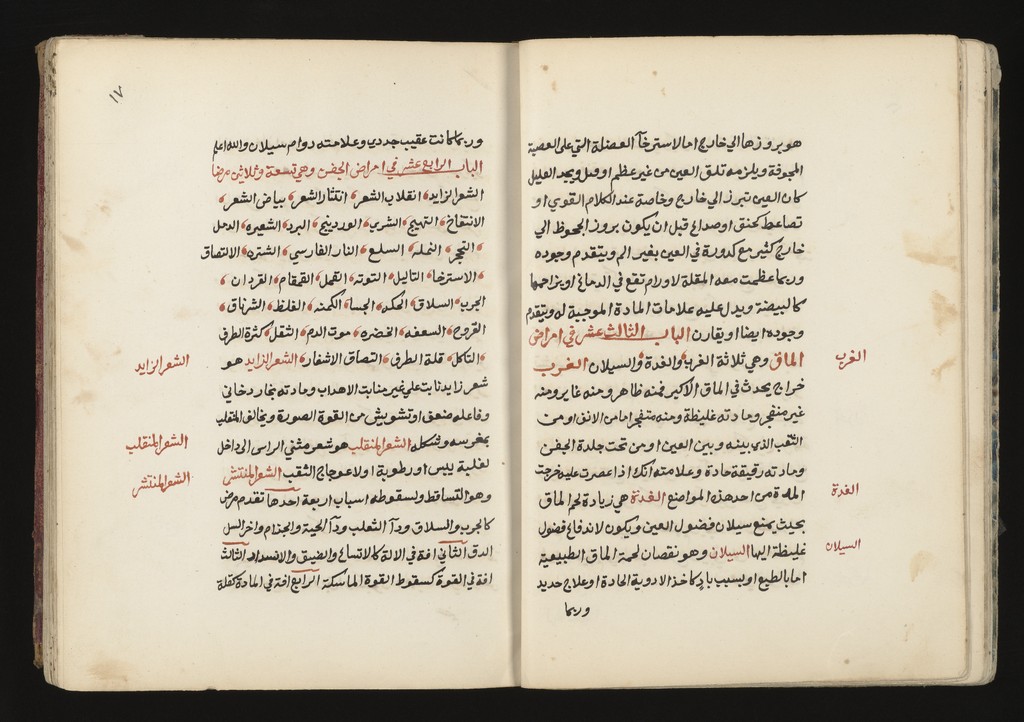 هو بروزها الي خارج اما الاسترخآ العضلة التي علي العصبة
المجوفة ويلزمه تلق العين من غير عظم او قبل ويجد العليل
كان العين تبرز الي خارج وخاصة عند الكلام القوي او
تضاعط كخنق او صداع قبل ان يكون بروز الجحوظ الي
خارج كثير مع كدورة في العين بغير الم ويتقدم وجوده
وربما عظمت معه المقلة لاورام تقع في الدماغ او يزاحمها
كالبيضة ويدل عليه علامات المادة الموجبة له ويتقدم
وجوده ايضا او يقارن الباب الثالث عشر في امراض
الماق وهي ثلاثة الغرب والغدة والسيلان الغرب
الغرب
خراج يحدث في الماق الاكبر فمنه ظاهر ومنه غاير ومنه
غير منفجر ومادته غليظة ومنه منفجر اما من الانف او من
الثقب الذي بينه وبين العين او من تحت جلدة الجفن
ومادته رقيقة حادة وعلامته انك اذا عصرت عليه خرجت
المدة من احد هذه المواضع الغدة هي زيادة لحم الماق
الغدة
بحيث يمنع سيلان فضول العين ويكون لاندفاع فضول
غليظة اليها السيلان وهو نقصان لحمة الماق الطبيعية
السيلان
اما بالطبع او بسبب باد كاخذ الادوية الحادة او علاج حديد
وربما
١٧
وربما كانت عقيب جدري وعلامته دوام سيلان والله اعلم
الباب الرابع عشر في امراض الجفن وهي تسعة وثلاثين مرضا
الشعر الزايد انقلاب الشعر انتثار الشعر بياض الشعر
الانتفاخ التهيج الشري الوردينج البرد الشعيره الدمل
التحجر النمله السلع النار الفارسي الشتره الالتصاق
الاسترخا التاليل التوته القمل القمقام القردان
الجرب السلاق الحكه الجسا الكمنه الغلظ الشرناق
القروح السعفه الخضره موت الدم الثقل كثرة الطرف
التاكل قلة الطرف التصاق الاشفار الشعر الزايد هو
الشعر الزايد
شعر زايد نابت علي غير منابت الاهداب ومادته بخار دخاني
وفاعله ضعف او تشويش من القوة المصورة ويخالف المنقلب
بمغرسه وشكله الشعر المنقلب هو شعر مثني الراس الي داخل
الشعر المنقلب
لغلبة يبس او رطوبة او لاعوجاج الثقب الشعر المنتثر
الشعر المنتثر
وهو التساقط ولسقوطه اسباب اربعة احدها تقدم مرض
كالجرب والسلاق ودآ الثعلب ودآ الحية والجذام واخر السل
الدق الثاني افة في الالة كالاتساع والضيق والانسداد الثالث
افة في القوة كسقوط القوة الماسكة الرابع افة في المادة كقلة